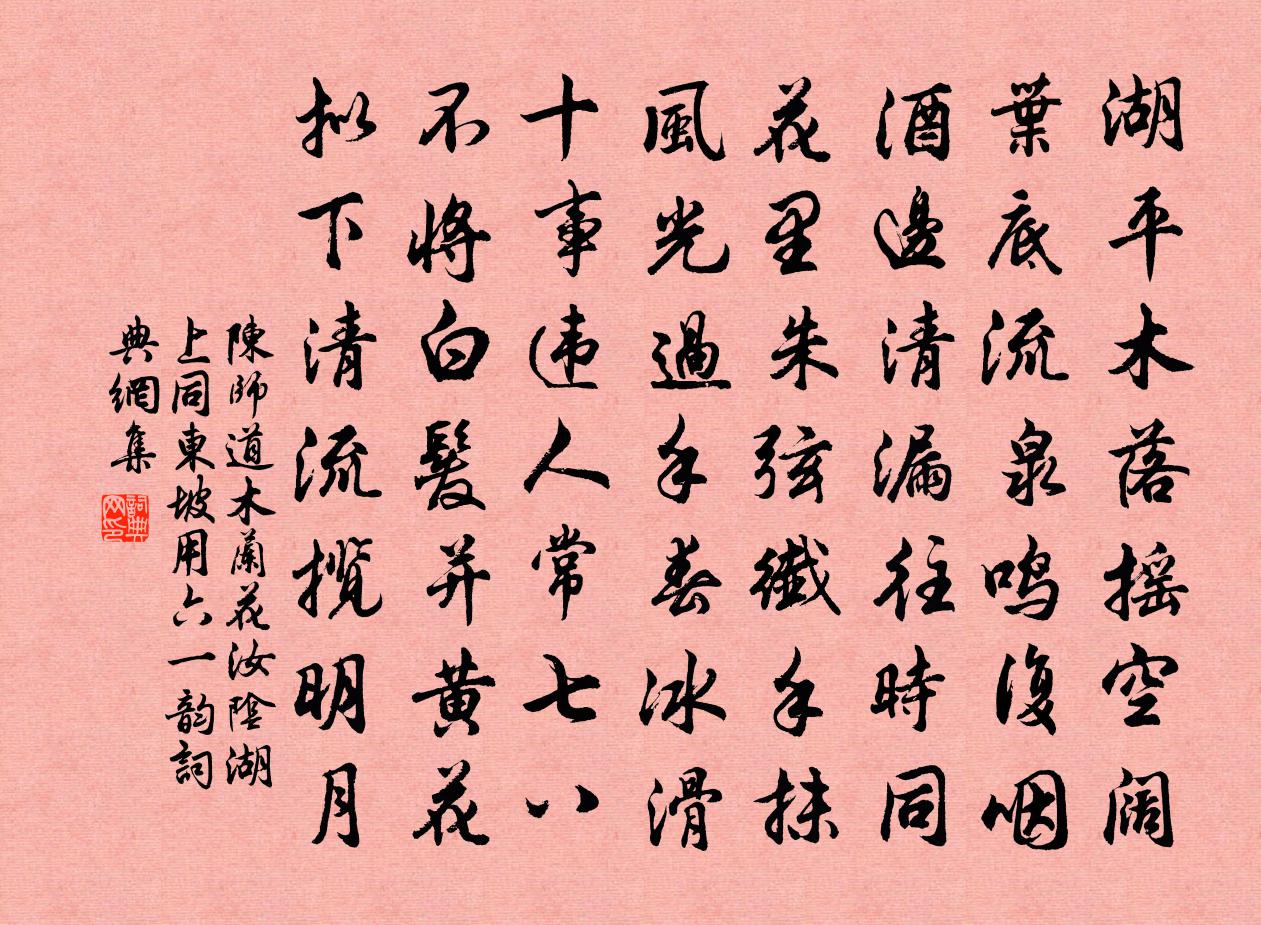 湖平木落摇空阔
葉底流泉鸣復咽
酒邊清漏往時同
花里朱弦纖手抹
風光過手春冰滑
十事违人常七八
不將白髮并黄花
拟下清流揽明月
陳師道木蘭花汝陰湖
上同東坡用六一韵詞
典網集
詞典
网印